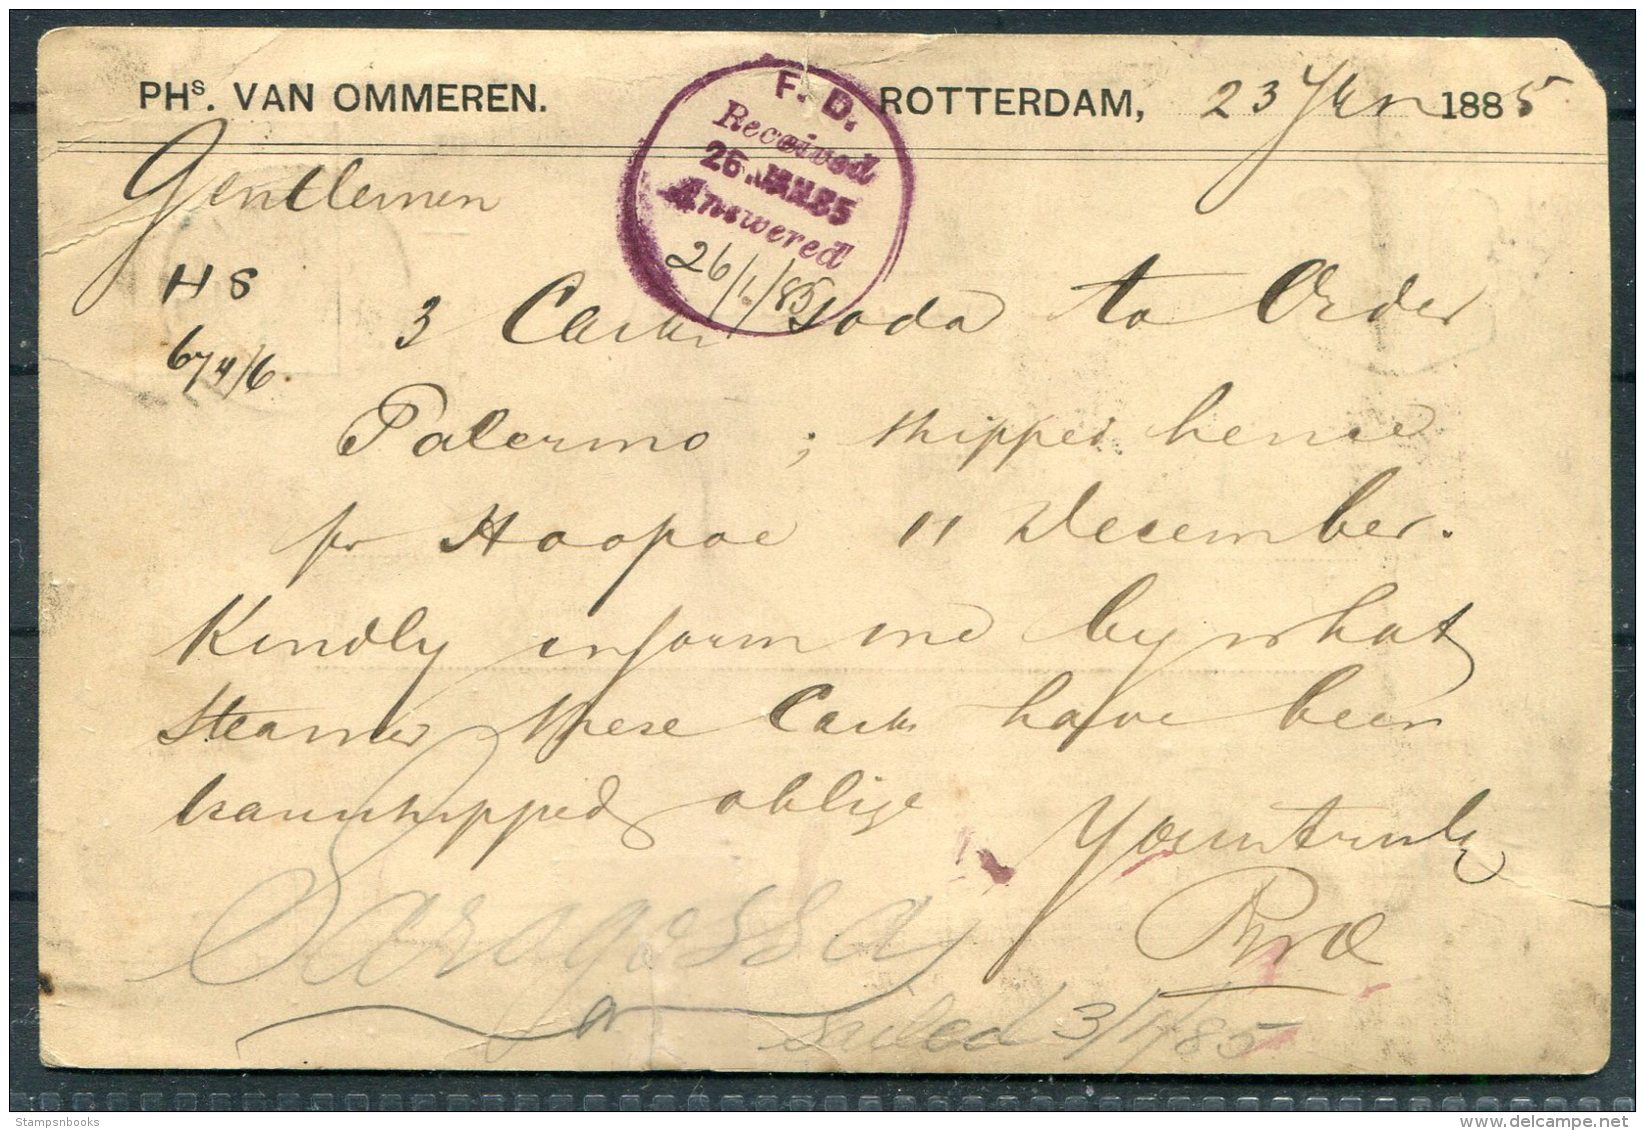 PHs. VAN OMMEREN. ROTTERDAM, 23 Jan 1885
F. D.
Received
26 JAN 85
Answered
26/1/85
Gentlemen
HS 3 Casks Soda to Order
674/6
Palermo ; shipped hence
pr Hoopoe 11 December.
Kindly inform me by what
Steamer these Casks have been
transhipped & oblige
Yours truly
Saragossa
Sailed 3/1/85
Stampsnbooks
delcampe.net